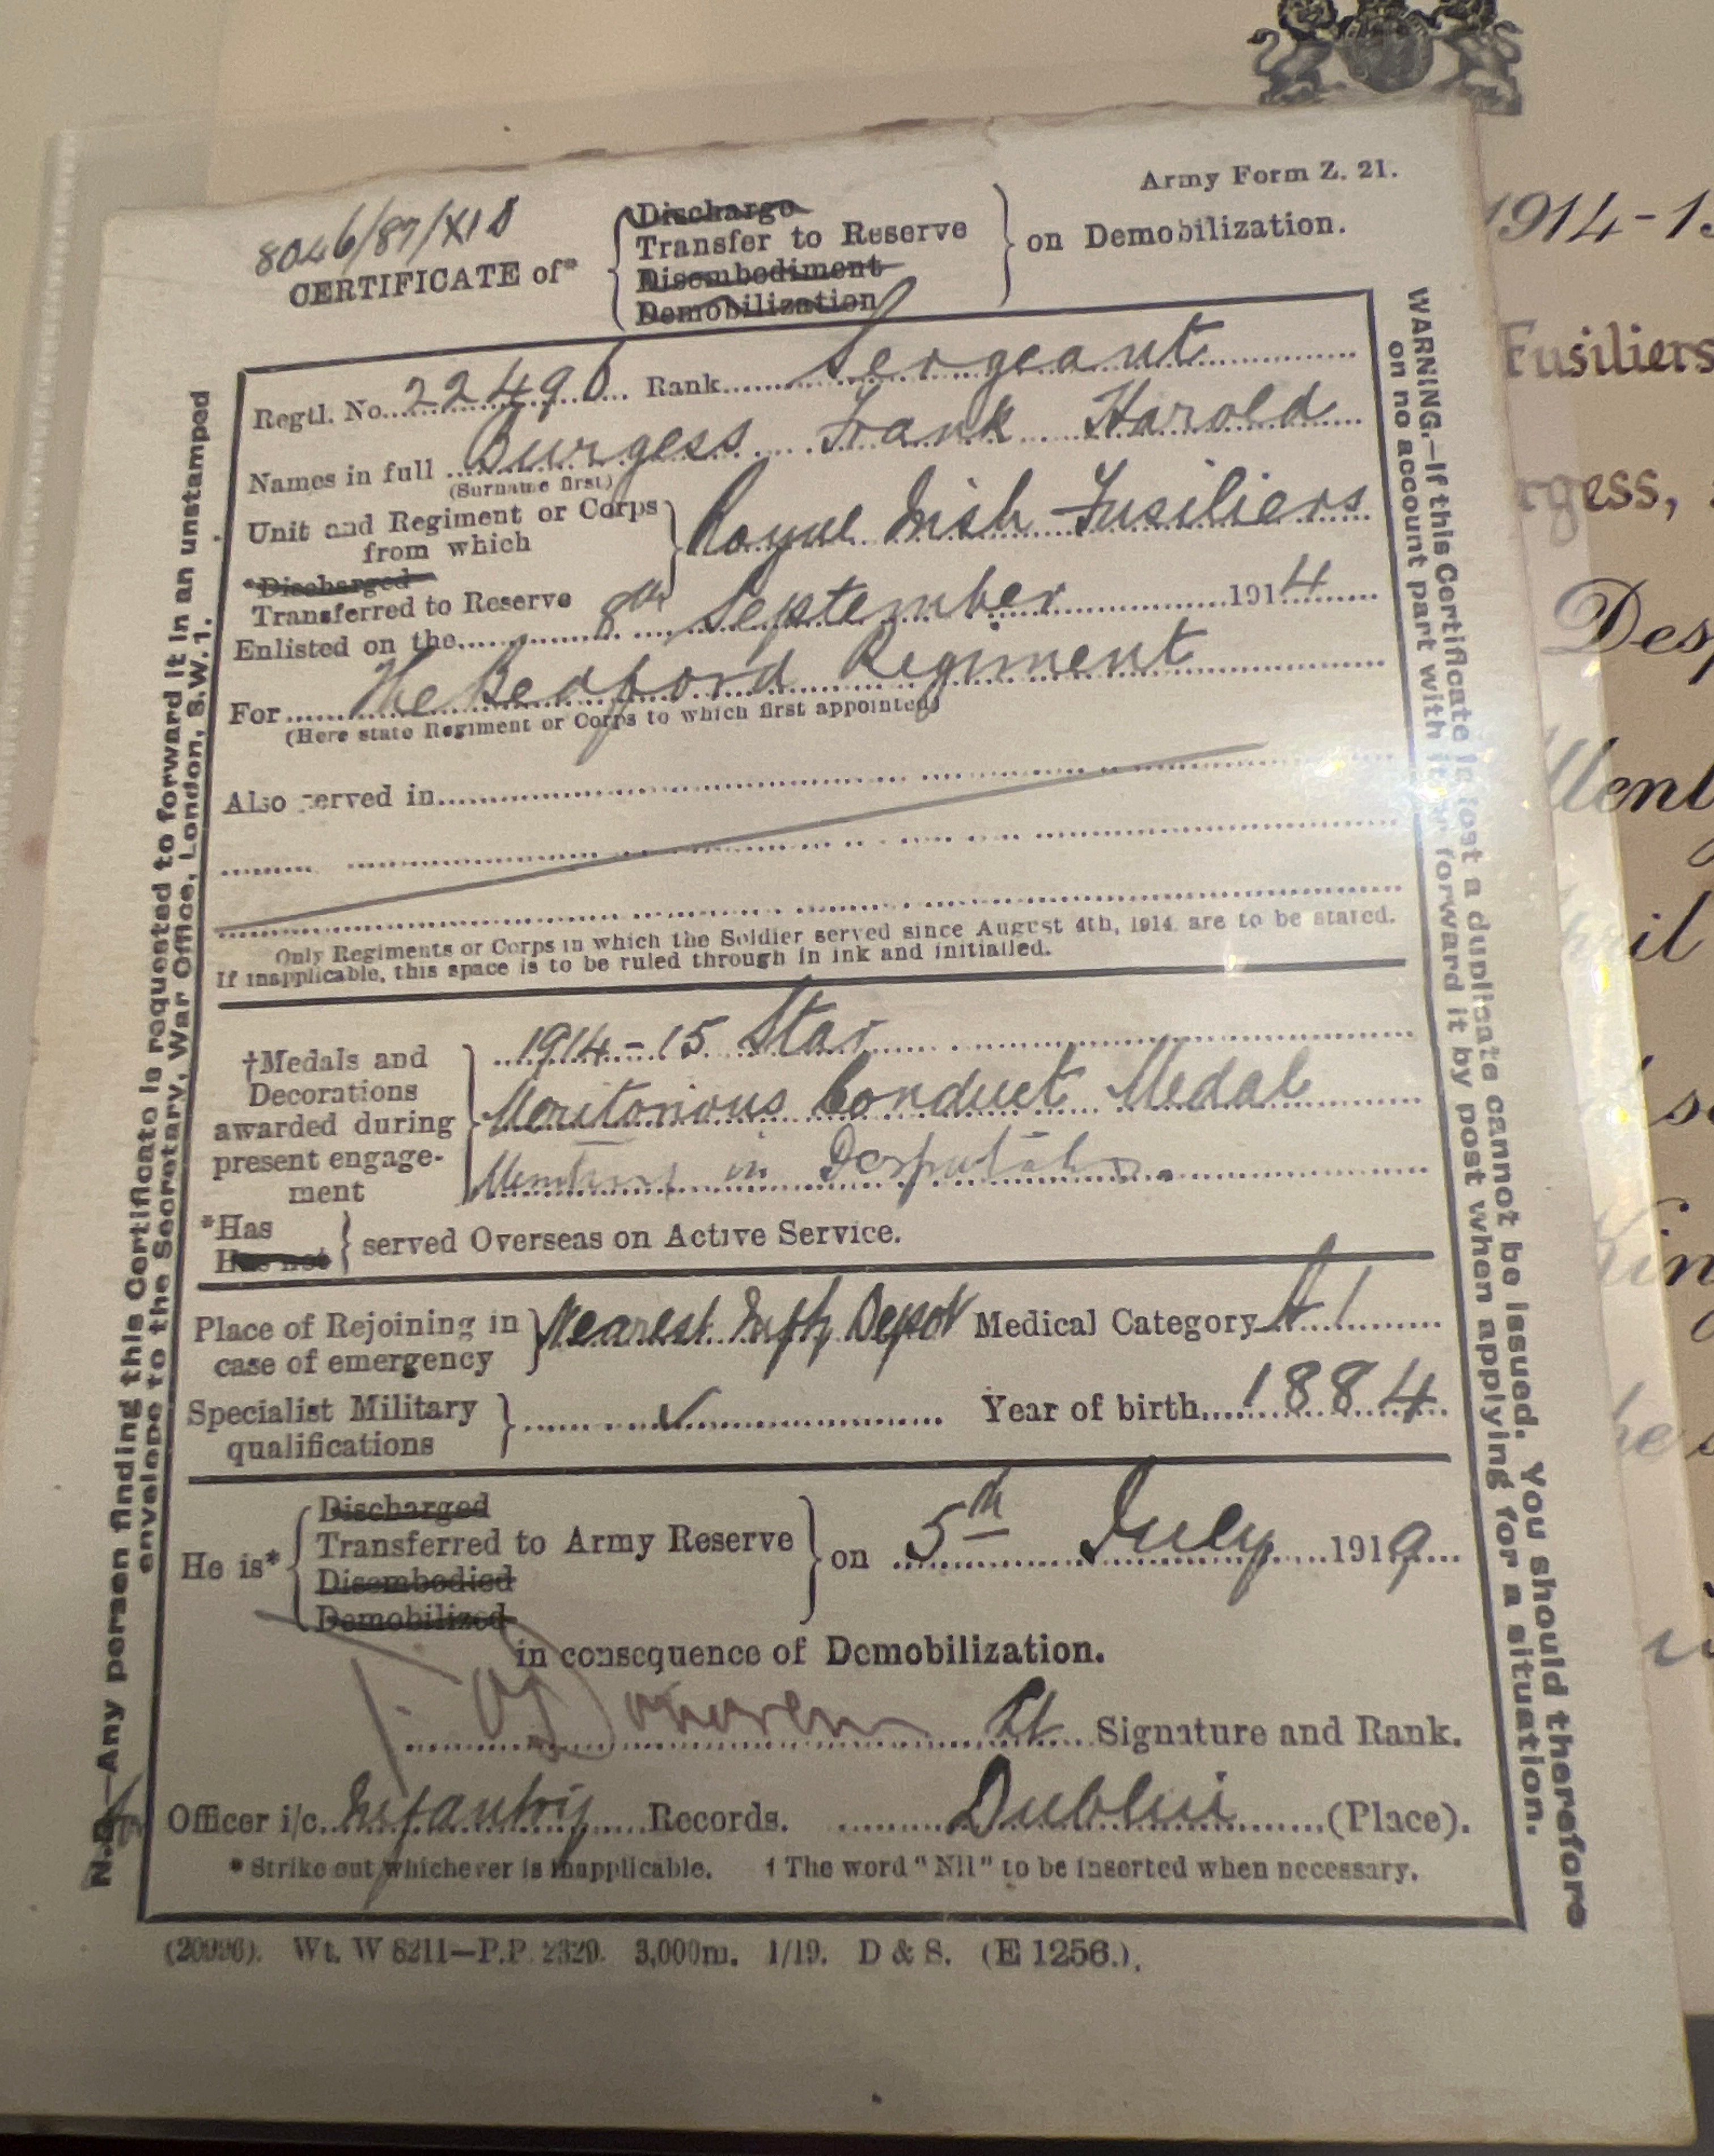 Army Form Z. 21.
8046/87/XID
CERTIFICATE of*
Discharge
Transfer to Reserve
Disembodiment
Demobilization
on Demobilization.
Regtl. No. 22496 Rank Sergeant
Names in full Burgess Frank Harold
(Surname first)
Unit and Regiment or Corps
from which
*Discharged
Transferred to Reserve
Royal Irish Fusiliers
Enlisted on the 8th September 1914
For The Bedford Regiment
(Here state Regiment or Corps to which first appointed)
Also served in
Only Regiments or Corps in which the Soldier served since August 4th, 1914, are to be stated.
If inapplicable, this space is to be ruled through in ink and initialled.
†Medals and
Decorations
awarded during
present engage-
ment
1914-15 Star
Meritorious Conduct Medal
in Despatches
*Has
Has not
served Overseas on Active Service.
Place of Rejoining in
case of emergency
Nearest Infy Depot Medical Category A1
Specialist Military
qualifications
✓ Year of birth 1884
He is*
Discharged
Transferred to Army Reserve
Disembodied
Demobilized
on 5th July 1919
in consequence of Demobilization.
Signature and Rank.
Officer i/c Infantry Records. Dublin (Place).
* Strike out whichever is inapplicable. † The word "Nil" to be inserted when necessary.
Wt. W 8211—P.P. 2329. 3,000m. 1/19. D & S. (E 1256.).
N.B.—Any person finding this Certificate is requested to forward it in an unstamped
envelope to the Secretary, War Office, London, S.W. 1.
WARNING.—If this Certificate is lost a duplicate cannot be issued. You should therefore
on no account part with it or forward it by post when applying for a situation.
1914-15
Fusiliers
rgess,
Des